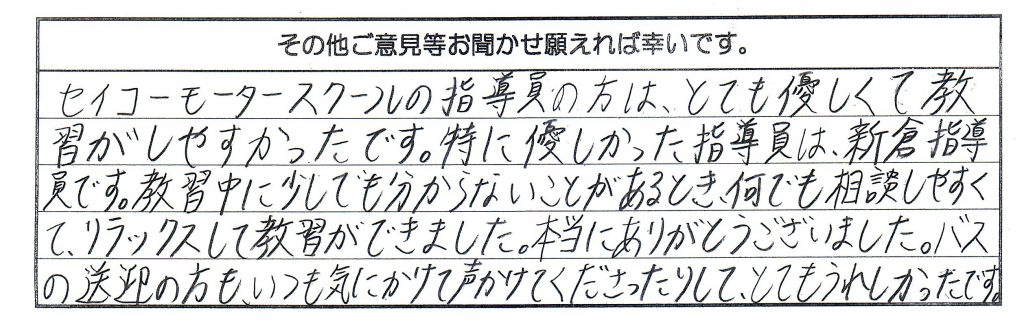 その他ご意見等お聞かせ願えれば幸いです。
セイコーモータースクールの指導員の方は、とても優しくて教
習がしやすかったです。特に優しかった指導員は、新倉指導
員です。教習中に少しでも分からないことがあるとき、何でも相談しやすく
て、リラックスして教習ができました。本当にありがとうございました。バス
の送迎の方も、いつも気にかけて声かけてくださったりして、とてもうれしかったです。